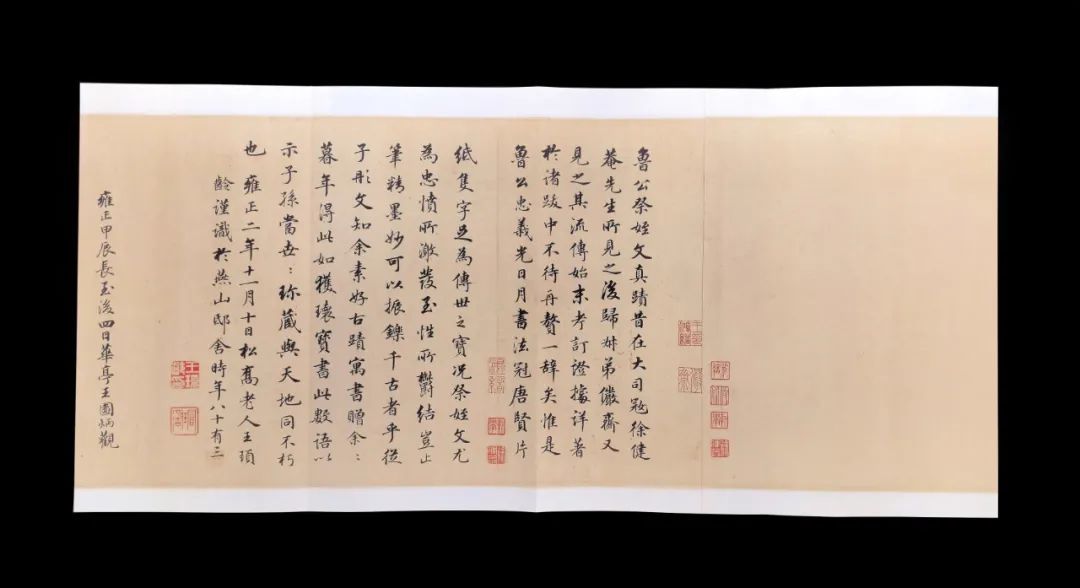 魯公祭姪文真蹟昔在大司寇徐健
菴先生所見之後歸弟儼齋又
見之其流傳始末考訂證據詳著
於諸跋中不待再贅一辭矣惟是
魯公忠義光日月書法冠唐賢片
紙隻字足為傳世之寶況祭姪文尤
為忠憤所激發至性所鬱結豈止
筆精墨妙可以振鑠千古者乎從
子彤文知余素好古蹟寓書贈余〻
暮年得此如獲瓌寶書此數語以
示子孫當世〻珍藏與天地同不朽
也 雍正二年十一月十日松喬老人王頊
齡謹識於燕山邸舍時年八十有三
雍正甲辰長至後四日華亭王圖炳觀